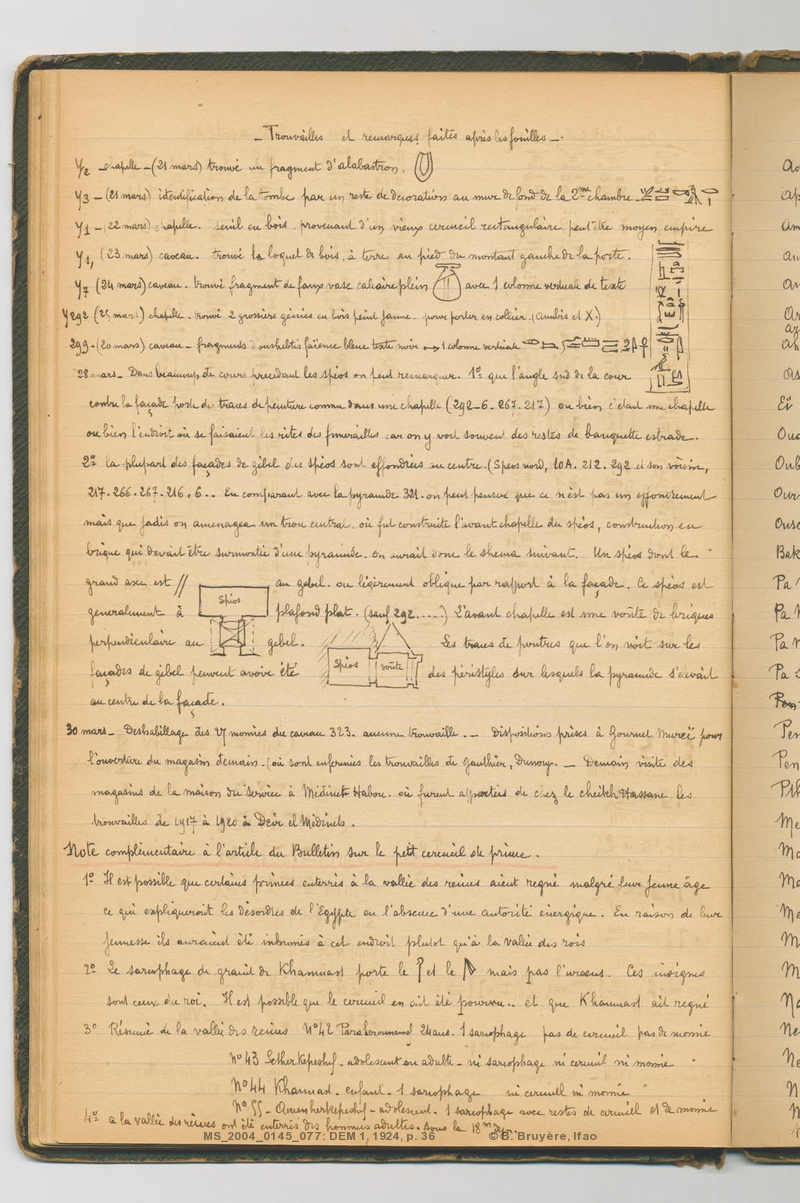 — Trouvailles et remarques faites après les fouilles —.
Y2 — chapelle — (21 mars) trouvé un fragment d'alabastron.
Y3 — (21 mars) identification de la tombe par un reste de decorations au mur de fond de la 2me chambre
Y1 — (22 mars) chapelle. Seuil en bois provenant d'un vieux cercueil rectangulaire peut être moyen empire
Y1, (23 mars) caveau. trouvé le loquet de bois, à terre au pied du montant gauche de la porte.
Y7 (24 mars) caveau. trouvé fragment de faux vase calcaire plein avec 1 colonne verticale de texte
Y292 (25 mars) chapelle. trouvé 2 grossiers génies en bois peint jaune pour porter en collier (Anubis et X.)
299 — (20 mars) caveau — fragments d'oushebtis faïence bleue texte noir 1 colonne verticale
28 mars — Dans beaucoup de cours precedant les spéos on peut remarquer. 1º que l'angle sud de la cour
contre la façade porte des traces de peinture comme dans une chapelle (292-6. 267. 217) ou bien c'etait une chapelle
ou bien l'endroit où se faisaient les rites des funerailles car on y voit souvent des restes de banquette estrade.
2º la plupart des façades de gébel des spéos sont effondrées au centre. (Speos nord, 10A. 212. 292 et son voisin,
217. 266. 267. 216. 6.. En comparant avec la pyramide 321. on peut penser que ce n'est pas un effondrement
mais que jadis on amenagea un trou central où fut construite l'avant chapelle du spéos, construction en
brique qui devait être surmontée d'une pyramide. on aurait donc le shema suivant. Un spéos dont le
grand axe est // au gebel. ou légèrement oblique par rapport à la façade. Ce spéos est
generalement à Spéos plafond plat. (sauf 292.....) L'avant chapelle est une voûte de briques
perpendiculaire au gebel. Les traces de poutres que l'on voit sur les
façades de gébel peuvent avoir été Spéos voute des péristyles sur lesquels la pyramide s'élevait
au centre de la façade.
30 mars — Deshabillage des 27 momies du caveau 323. aucune trouvaille. — Dispositions prises à Gournet Mureï pour
l'ouverture du magasin demain. (où sont enfermées les trouvailles de Gauthier, Dunoury. — Demain visite des
magasins de la maison du Service à Médinet Habou. où furent apportées de chez le cheikh Hassane les
trouvailles de 1917 à 1920 à Deir el Médineh.
Note complémentaire à l'article du Bulletin sur le petit cercueil de prince.
1º Il est possible que certains princes enterrés à la vallée des reines aient regné malgré leur jeune âge
ce qui expliquerait les désordres de l'Egypte en l'absence d'une autorité énergique. En raison de leur
jeunesse ils auraient été inhumés à cet endroit plutot qu'à la vallée des rois
2º Le sarcophage de granit de Khamuast porte le et le mais pas l'uraeus. Ces insignes
sont ceux du roi. Il est possible que le cercueil en ait été pourvu.. et que Khamuast ait regné
3º Résumé de la vallée des reines Nº 42 Paraherounemef 24 ans. 1 sarcophage pas de cercueil pas de momie
Nº 43 Setherkepeshef — adolescent ou adulte — ni sarcophage ni cercueil ni momie
Nº 44 Khamuast — enfant — 1 sarcophage ni cercueil ni momie
Nº 55 — Amenherkepeshef — adolescent — 1 sarcophage avec restes de cercueil et de momie
4º à la vallée des reines ont été enterrés des hommes adultes. Sous la 18me
MS_2004_0145_077: DEM 1, 1924, p. 36 © B. Bruyère, Ifao